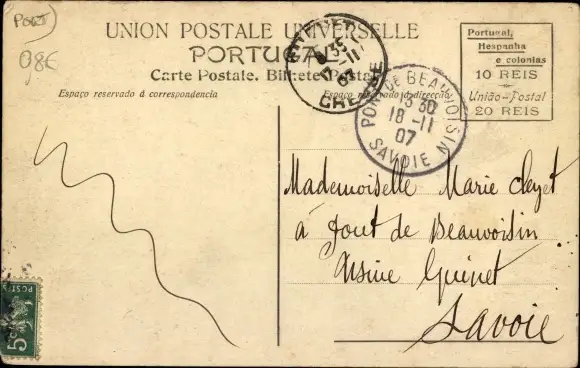 PORT
08€
UNION POSTALE UNIVERSELLE
PORTUGAL
Carte Postale. Bilhete Postal
Espaço reservado á correspondencia
Espaço reservado á direcção
Portugal,
Hespanha
e colonias
10 REIS
União-Postal
20 REIS
8 35
17 -11
07
PONT DE BEAUVOISIN
15 30
18 -11
07
SAVOIE
Mademoiselle Marie Cleyet
à Pont de Beauvoisin
Usine Guinet
Savoie
5
POSTES